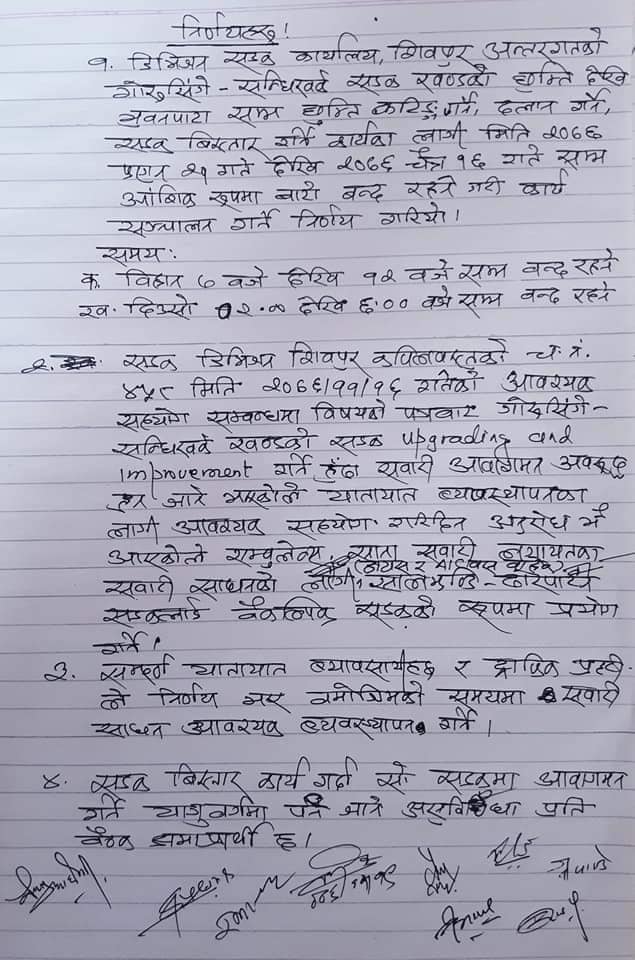 निर्णयहरू!
१. डिभिजन सडक कार्यालय, शिवपुर अन्तरगतको
गोरुसिंगे - सन्धिखर्क सडक खण्डको झुम्ति देखि
सम्म कटिङ्ग गर्ने, ढलान गर्ने,
सडक बिस्तार गर्ने कार्यका लागी मिति २०७६
२१ गते देखि २०७६ चैत्र १६ गते सम्म
आंशिक रूपमा बाटो बन्द रहने गरी कार्य
सञ्चालन गर्ने निर्णय गरियो।
समय:
क. विहान ७ वजे देखि १२ वजे सम्म वन्द रहने
ख. दिउसो ०२.०० देखि ६:०० बजे सम्म वन्द रहने
२. सडक डिभिजन शिवपुर कपिलवस्तुको च. नं.
४५८ मिति २०७६/११/१६ गतेको आवश्यक
सहयोग सम्बन्धमा विषयको पत्रबाट गोरुसिंगे-
सन्धिखर्क खण्डको सडक upgrading and
improvement गर्ने हुँदा सवारी आवागमन अवरूद्ध
हुन जाने भएकोले यातायात ब्यावस्थापनका
लागी आवश्यक सहयोग गरिदिन अनुरोध भै
आएकोले एम्वुलेन्स, साना सवारी लगायतका
सवारी साधनको लागी, सालझण्डी - ढोरपाटन
सडकलाई बैकल्पिक सडकको रूपमा प्रयोग
गर्ने।
३. सम्पूर्ण यातायात ब्यावसायीहरू र ट्राफिक प्रहरी-
ले निर्णय भए बमोजिमको समयमा सवारी
साधन आवश्यक ब्यवस्थापन गर्ने।
४. सडक बिस्तार कार्य गर्दा सो सडकमा आवागमन
गर्ने यात्रुवर्गमा पर्न जाने असुविधा प्रति
बैठक क्षमाप्रार्थी छ।